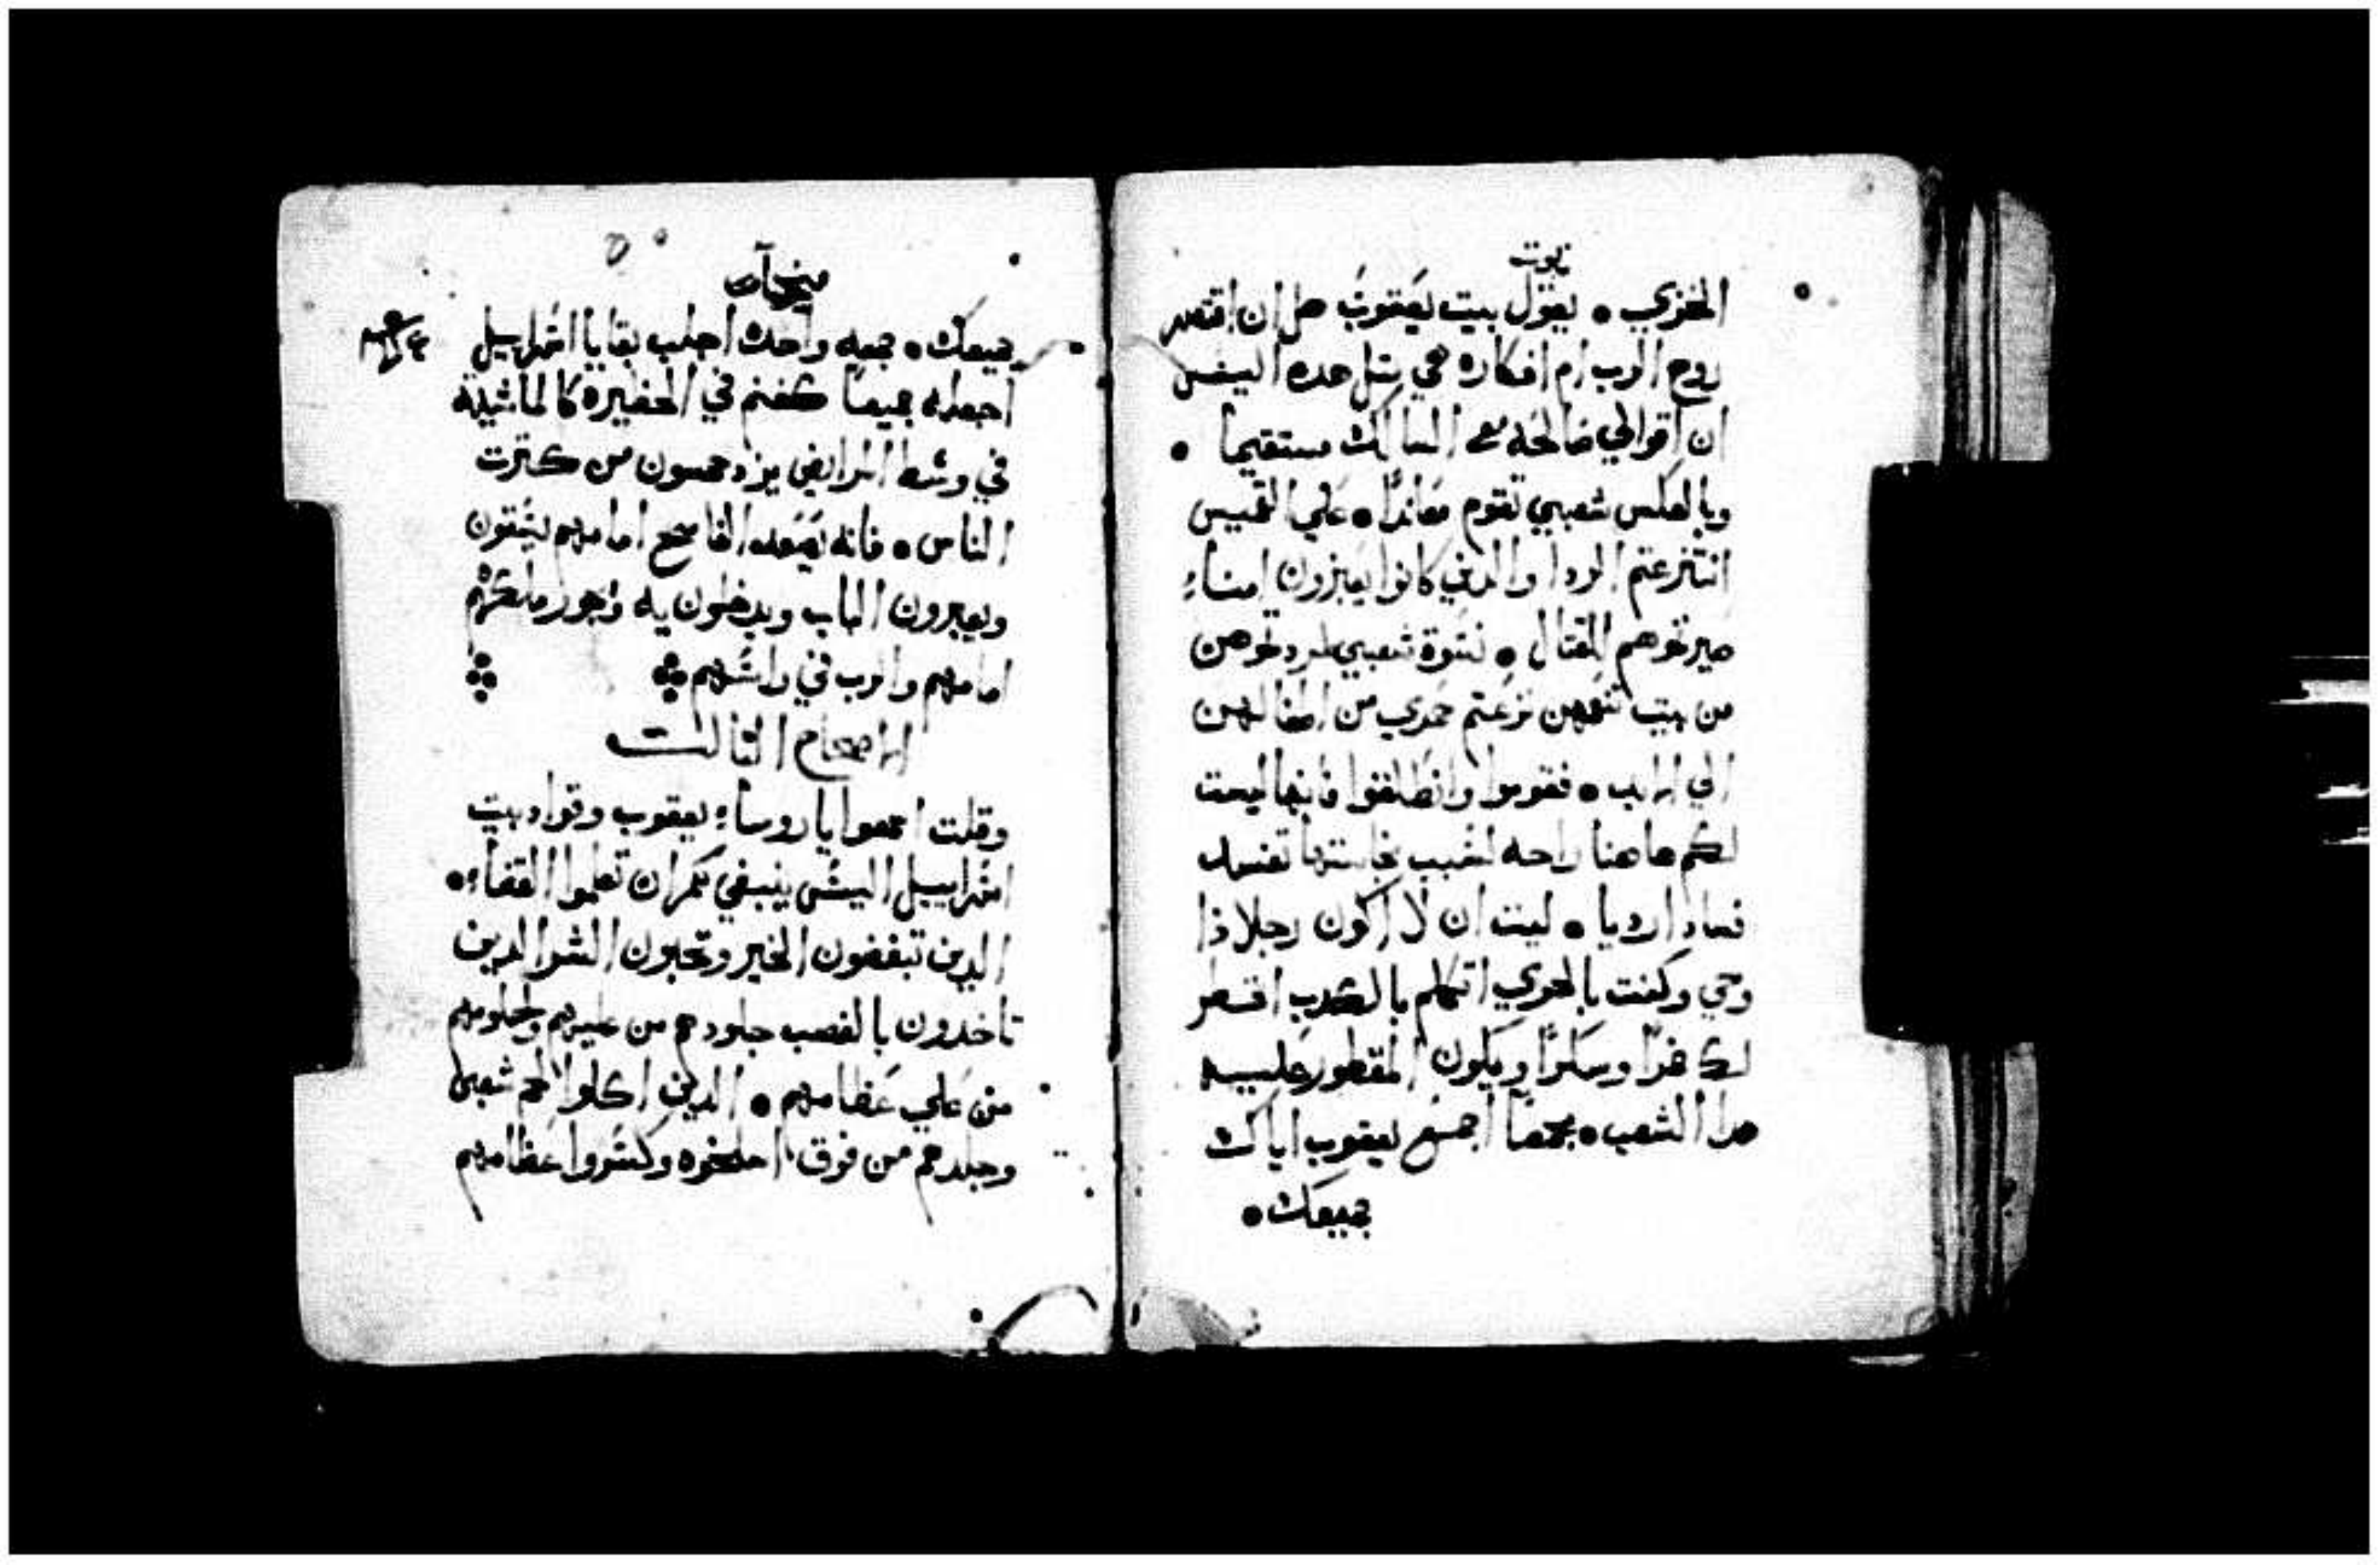 نبوت
الخزي • يقول بيت يعقوب هل ان اقتصر
روح الرب ام افكاره هي مثل هده اليس
ان اقوالي صالحه مع السالك مستقيماً •
وبالعكس شعبي تقوم معانداً • علي القميص
انتزعتم الردا والدين كانوا يعبرون امناء
صيرتموهم للقتال • نسوة شعبي طردتموهن
من بيت تنعمهن نزعتم حمدي من اطفالهن
الي الابد • فقوموا وانطلقوا فانها ليست
لكم هاهنا راحه لسبب نجاستها تفسد
فساد ارديا • ليت ان لا اكون رجلا ذا
وحي وكنت بالحري اتكلم بالكدب اقطر
لك خمراً وسكراً ويكون المقطور عليه
هدا الشعب • بجمعاً اجمع يعقوب اياك
جميعك •
ميخا
جميعك • جمعه واحده اجلب بقايا اسراييل
اجعله جميعاً كغنم في الحظيره كالماشية
في وسط المرابض يزدحمون من كترت
الناس • فانه يصعد الفاسح امامهم يشقون
ويعبرون الباب ويدخلون به ويجوز ملكهم
امامهم والرب في راسهم
الاصحاح الثالث
وقلت اسمعوا يا روساء يعقوب وقواد بيت
اسراييل اليس ينبغي لكم ان تعلموا القضاء •
الدين تبغضون الخير وتحبون الشر الدين
تاخدون بالغصب جلودهم من عليهم ولحلومهم
من علي عظامهم • الدين اكلوا لحم شعبي
وجلدهم من فوق اسلخوه وكسروا عظامهم